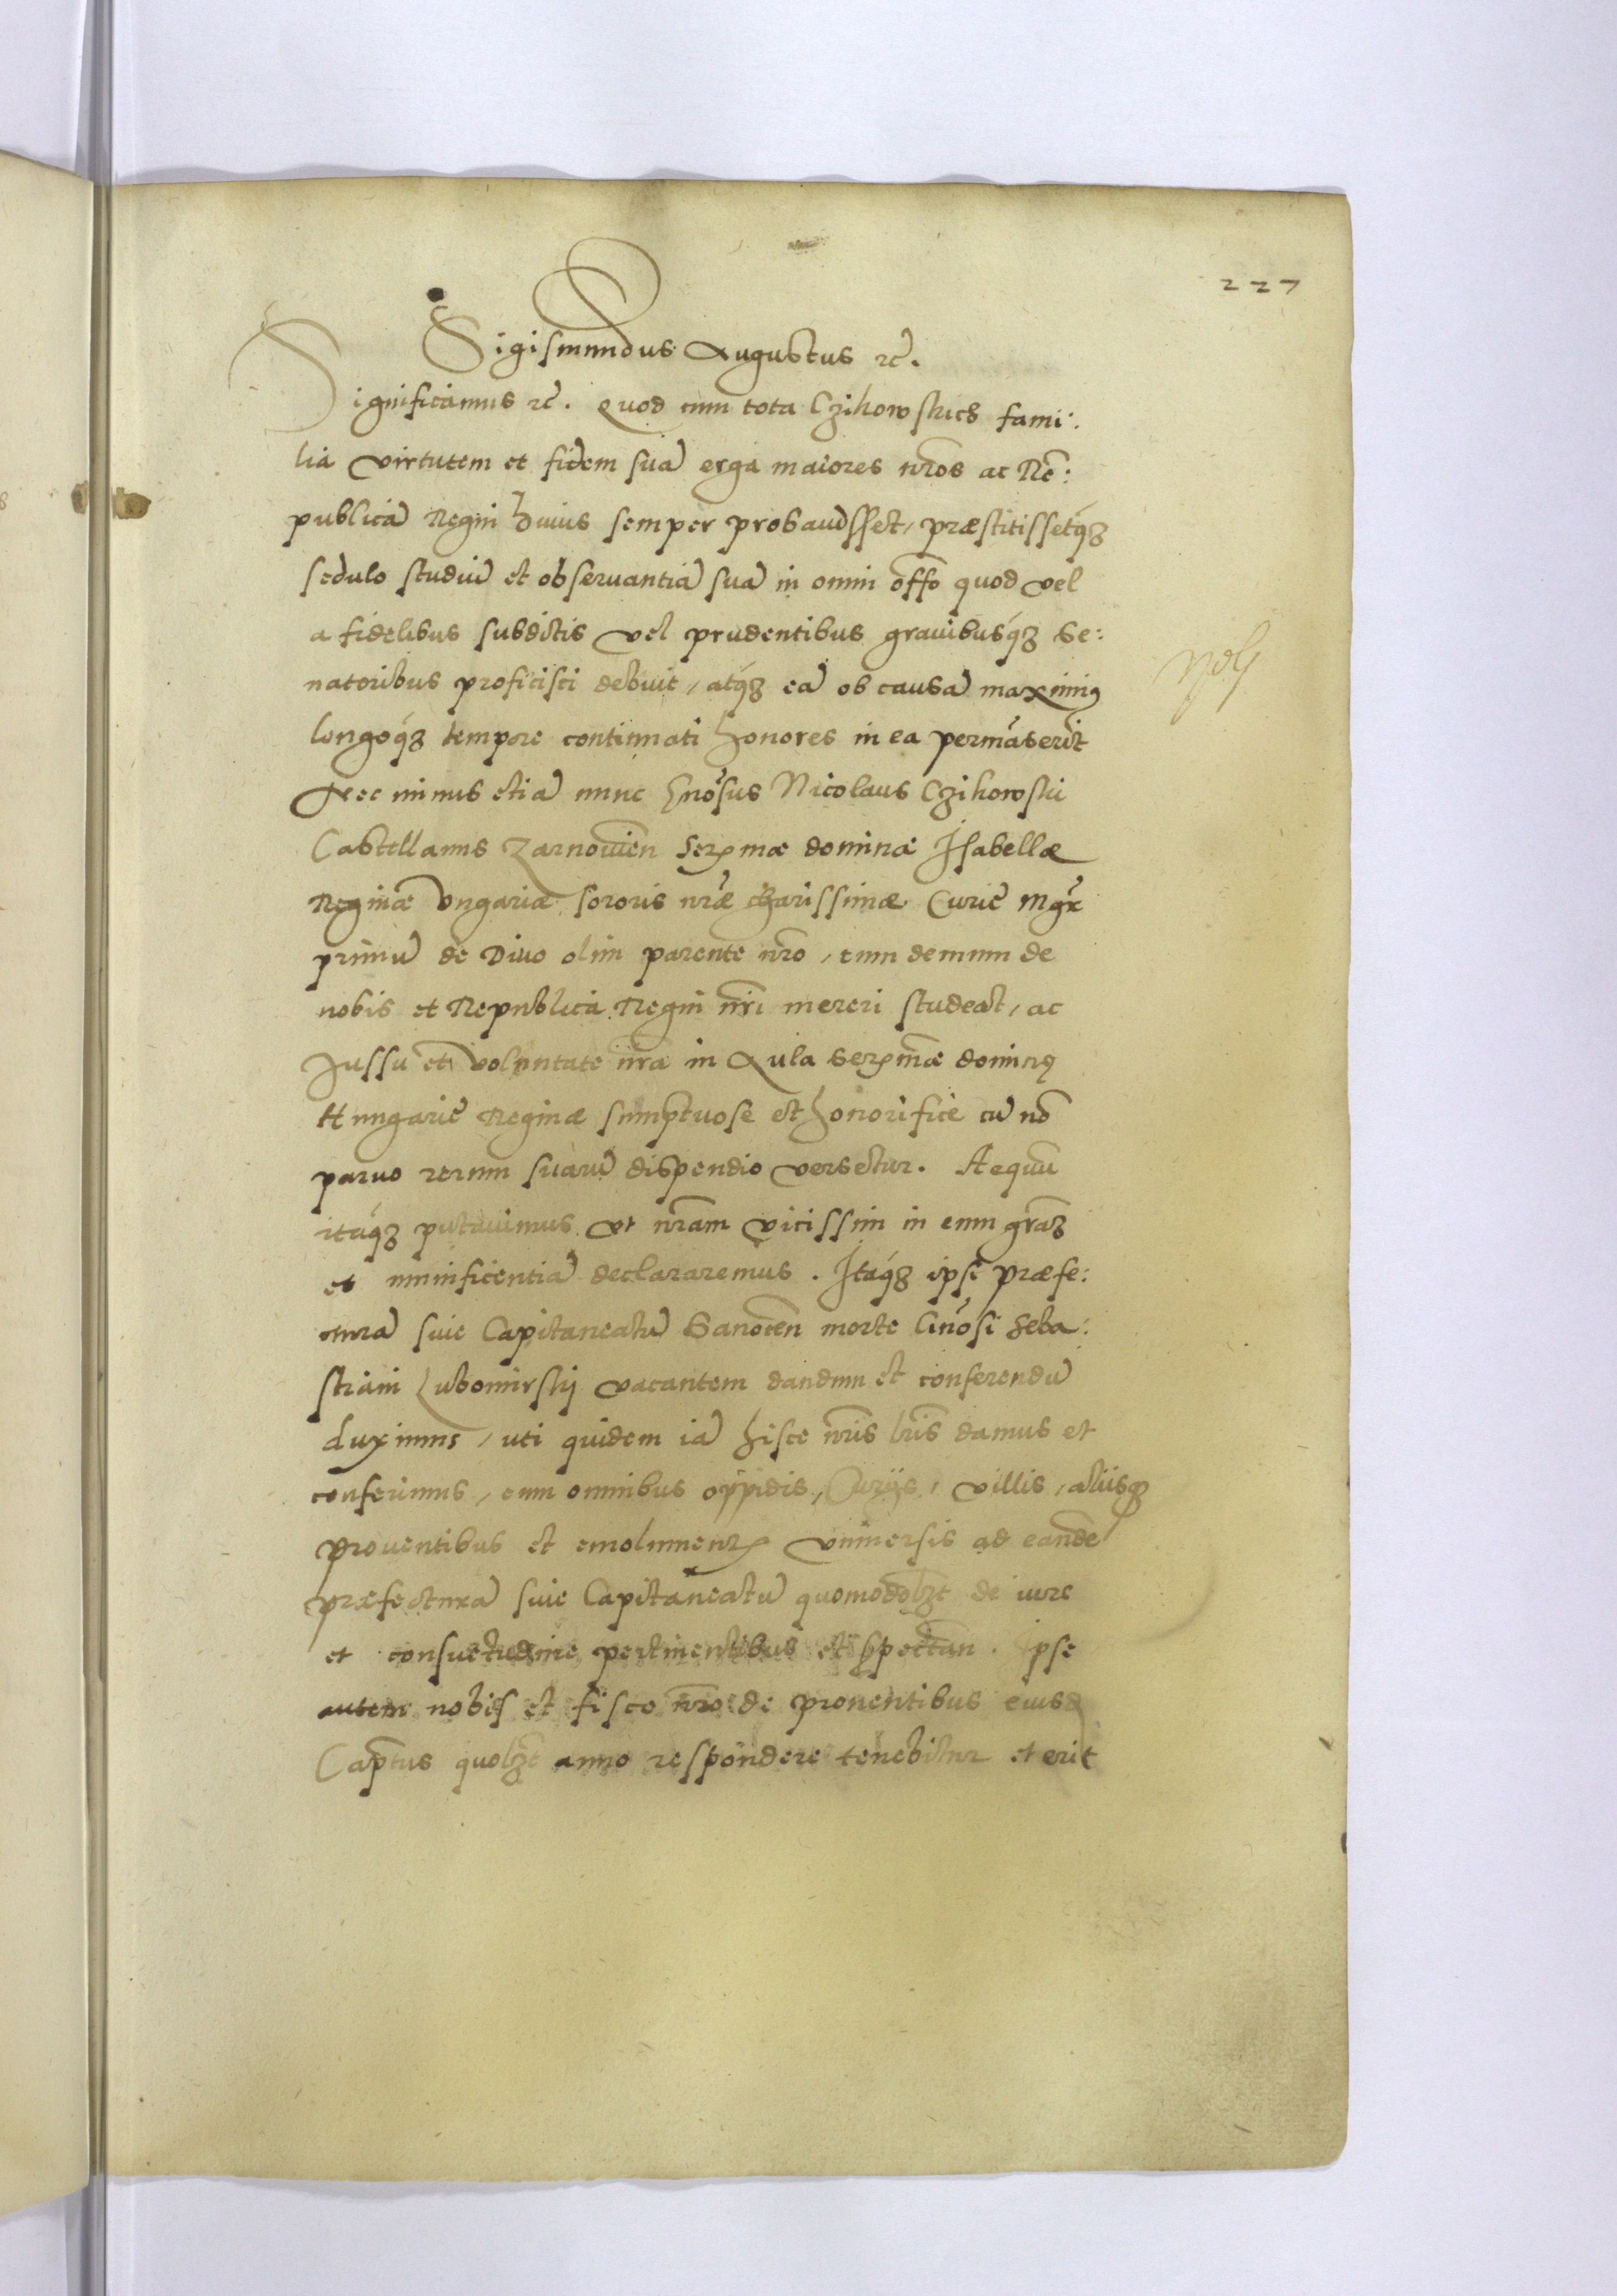 227
Sigismundus Augustus rc̃.
Significamus rc̃. Quod cum tota Czikowskich fami:
lia virtutem et fidem suã erga maiores nr̃os ac Rẽ:
publicã Regni huius semper probauisset, præstitissetq́ʒ
sedulo studiũ et obseruantiã suã in omni off̃o quod vel
a fidelibus subditis vel prudentibus grauibusq́ʒ Se:
natoribus proficisci debuit, atq́ʒ eã ob causã maximiq̃
longoq́ʒ tempore continuati honores in ea permãserĩt
Nec minus etiã nunc Gnõsus Nicolaus Czikowski
Castellanus Zarnowieñ Serꝫmæ dominæ Isabellæ
Reginæ Vngariæ sororis nr̃æ charissimæ Curie Mgr̃
primũ de Diuo olim parente nr̃o, tum demum de
nobis et Republica Regni nr̃i mereri studeat, ac
Jussu et voluntate nr̃a in Aula Serꝫmæ dominę
Hungarie Reginæ sumptuose et honorifice cũ nõ
paruo rerum suarũ dispendio versetur. Aequũ
itaq́ʒ putauimus vt nr̃am vicissim in eum gr̃aʒ
et munificentiã declararemus. Itaq́ʒ ipsi præfe:
cturã siue Capitaneatũ Sanoceñ morte Gnõsi Seba:
stiani Lubomirskij vacantem dandum et conferendũ
duximus, uti quidem iã hisce nr̃is lr̃is damus et
conferimus, cum omnibus oppidis, Curijs, villis, aliisqʒ
prouentibus et emolumentꝫ vniuersis ad eandẽ
præfecturã siue Capitaneatũ quomodolʒt de iure
et consuetudine pertinentibus et spectañ. Ipse
autem nobis et fisco nr̃o de prouentibus eiusd
Captus quolʒt anno respondere tenebitur et erit